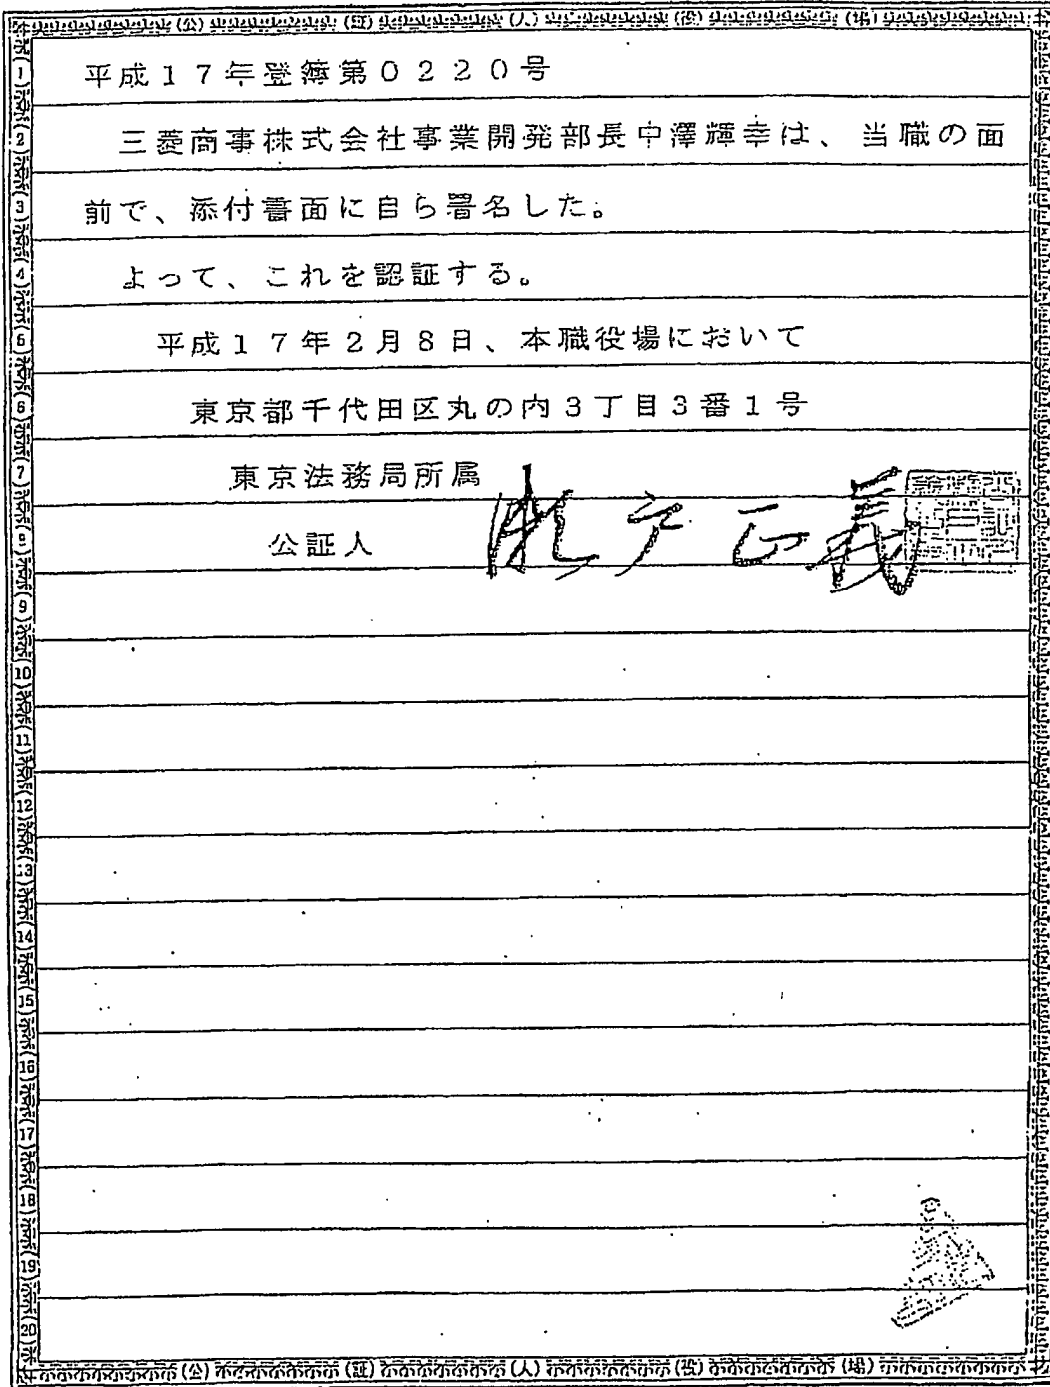 (公) (証) (人) (役) (場)
(1) 平成17年登簿第0220号
(2) 三菱商事株式会社事業開発部長中澤輝幸は、当職の面
(3) 前で、添付書面に自ら署名した。
(4) よって、これを認証する。
(5) 平成17年2月8日、本職役場において
(6) 東京都千代田区丸の内3丁目3番1号
(7) 東京法務局所属
(8) 公証人 正義
(9)
(10)
(11)
(12)
(13)
(14)
(15)
(16)
(17)
(18)
(19)
(20)
(公) (証) (人) (役) (場)